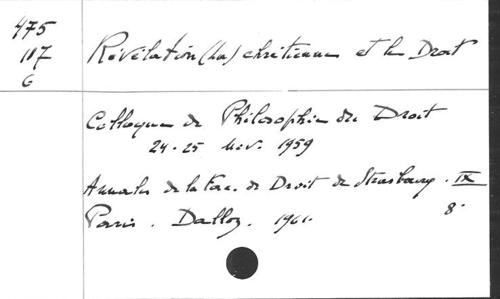 475
107
6
Révélation (La) chrétienne et le Droit
Colloque de Philosophie du Droit
24-25 nov. 1959
Annales de la Fac. de Droit de Strasbourg. IX
Paris. Dalloz. 1961.
8°